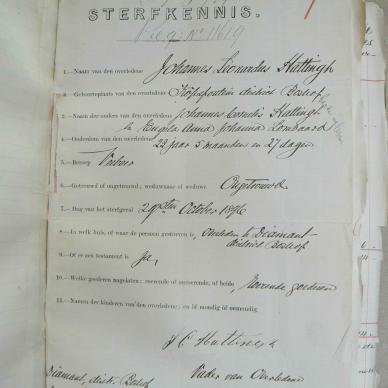 STERFKENNIS.
1.—Naam van den overledene Johannes Leonardus Hattingh
2.—Geboorteplaats van den overledene district Boshof
3.—Naam der ouders van den overledene Johannes Cornelis Hattingh
& Engela Anna Johanna Lombaard
4.—Ouderdom van den overledene 23 jaar 5 maanden en 27 dagen
5.—Beroep
6.—Getrouwd of ongetrouwd, weduwnaar of weduwe Ongetrouwd
7.—Dag van het sterfgeval 29sten October 1896
8.—In welk huis, of waar de persoon gestorven is, Overleden te Diamant
district Boshof
9.—Of er een testament is Ja,
10.—Welke roerende of onroerende, of beide, nagelaten Roerende goederen
11.—Namen der kinderen van den overledene, en of mondig of onmondig
J C Hattingh
Diamant, distr. Boshof
Vader van Overledene